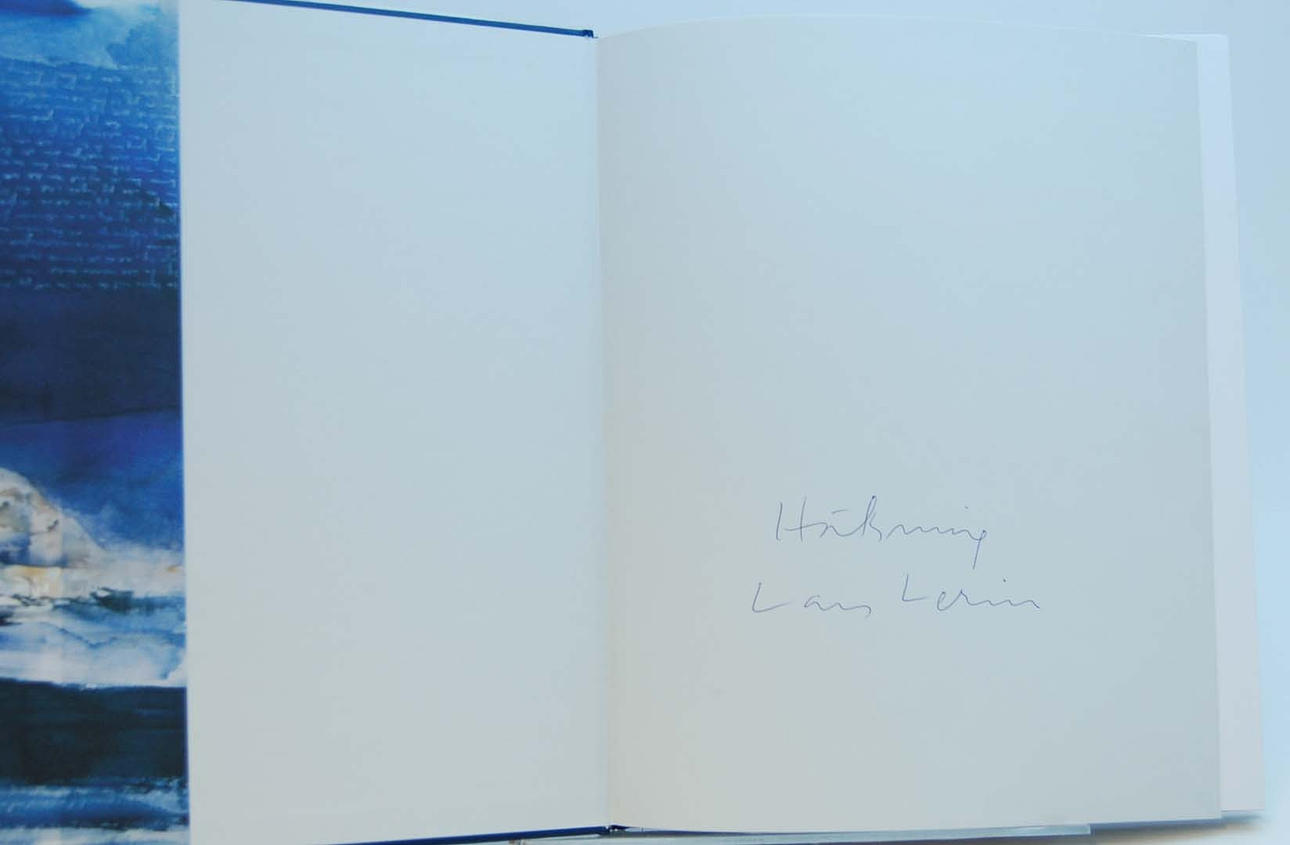 Hälsning
Lars Lerin